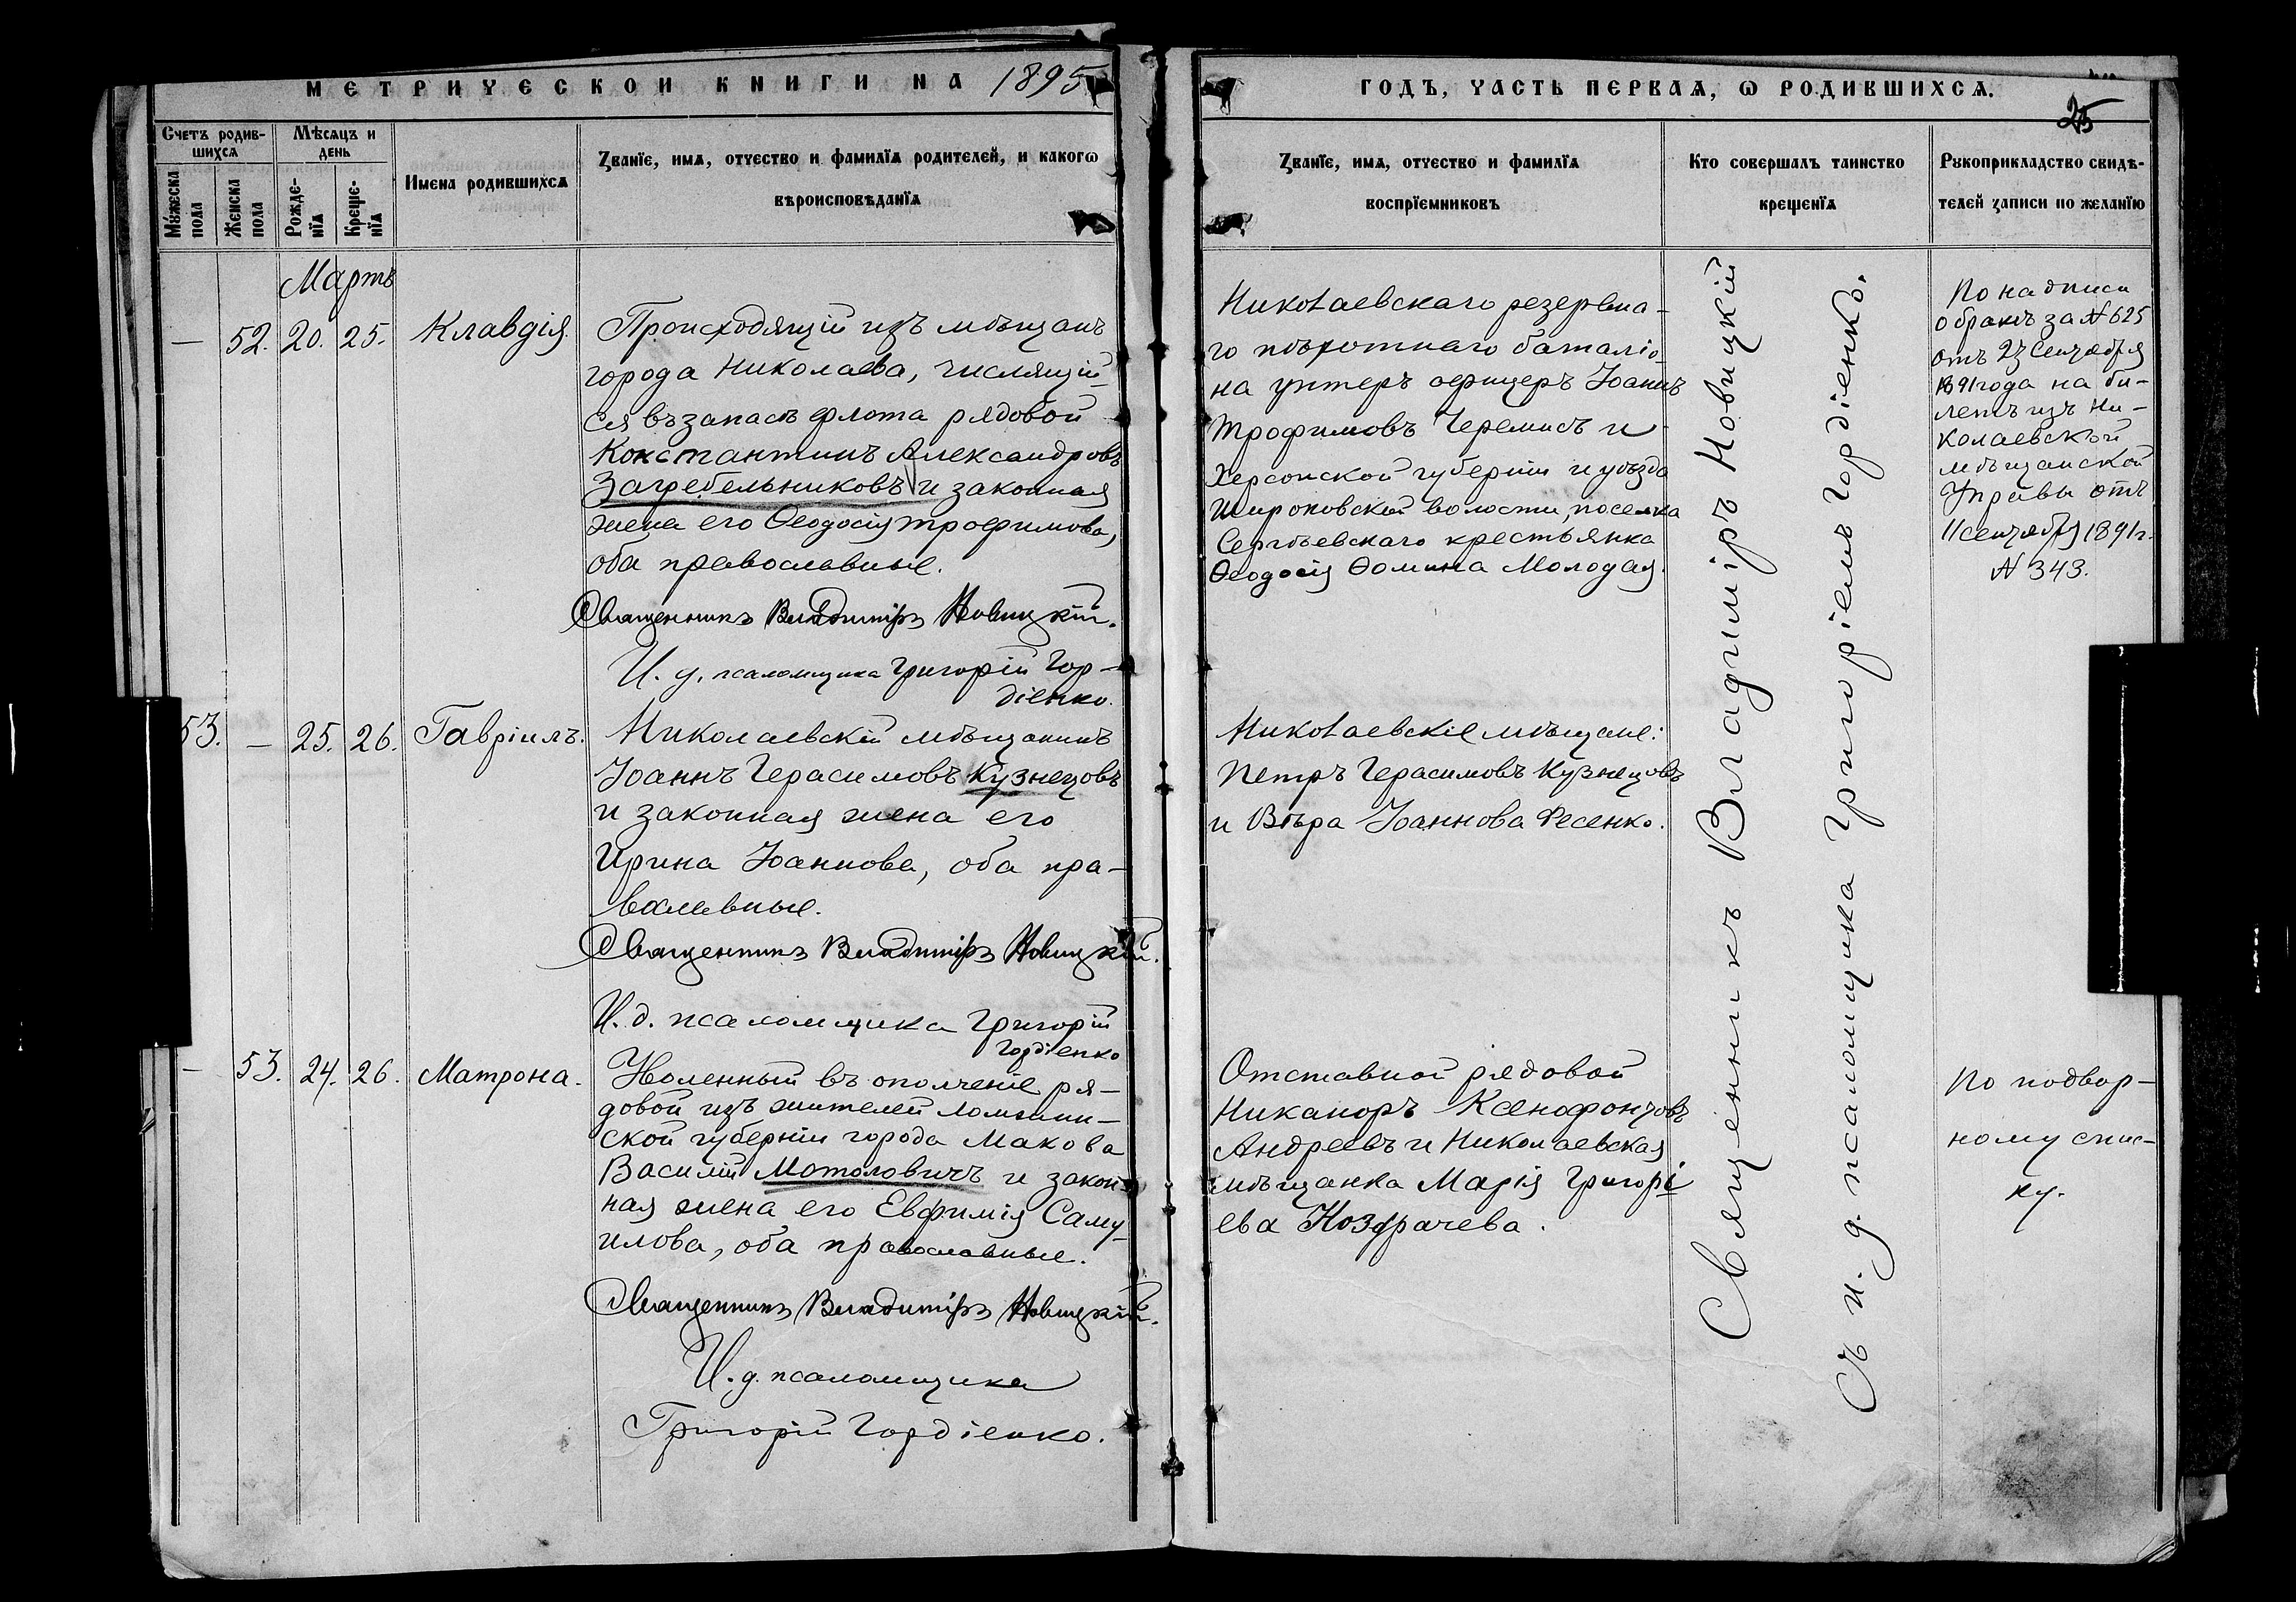 МЕТРИЧЕСКОЙ КНИГИ НА 1895
ГОДЪ, ЧАСТЬ ПЕРВАѦ, Ѡ РОДИВШИХСѦ.
25
Счетъ родив-
шихсѧ
Мѣсѧцъ и
день
Мꙋжеска
пола
Женска
пола
Рожде-
нїѧ
Креще-
нїѧ
Имена родившихсѧ
Званїе, имѧ, отчество и фамилїѧ родителей, и какогѡ
вѣроисповѣданїѧ
Званїе, имѧ, отчество и фамилїѧ
воспрїемниковъ
Кто совершалъ таинство
крещенїѧ
Рꙋкоприкладство свидѣ-
телей записи по желанїю
Мартъ
— 52. 20. 25. Клавдія.
Происходящій изъ мѣщанъ
города Николаева, числящій-
ся въ запасѣ флота рядовой
Константинъ Александровъ
Загребельниковъ и законная
жена его Ѳеодосія Трофимова,
оба православные.
Священникъ Владиміръ Новицкій.
И. д. псаломщика Григорій Гор-
діенко.
Николаевскаго резервна-
го пѣхотнаго баталіо-
на унтеръ офицеръ Іоаннъ
Трофимовъ Черемисъ и
Херсонской губерніи и уѣзда
Широковской волости, поселка
Сергѣевскаго крестьянка
Ѳеодосія Ѳомина Молодая.
По надписи
о бракѣ за № 625
отъ 23 Сентября
1891 года на би-
летѣ изъ Ни-
колаевской
мѣщанской
Управы отъ
11 сентября 1891 г.
№ 343.
53. — 25. 26. Гавріилъ.
Николаевскій мѣщанинъ
Іоаннъ Герасимовъ Кузнецовъ
и законная жена его
Ирина Іоаннова, оба пра-
вославные.
Священникъ Владиміръ Новицкій.
И. д. псаломщика Григорій
Гордіенко
Николаевскіе мѣщане:
Петръ Герасимовъ Кузнецовъ
и Вѣра Іоаннова Фесенко.
— 53. 24. 26. Матрона.
Уволенный въ ополченіе ря-
довой изъ жителей Ломжин-
ской губерніи города Макова
Василій Мотоловичъ и закон-
ная жена его Евфимія Саму-
илова, оба православные.
Священникъ Владиміръ Новицкій.
И. д. псаломщика
Григорій Гордіенко.
Отставной рядовой
Никаноръ Ксенофонтовъ
Андреевъ и Николаевская
мѣщанка Марія Григорі-
ева Ноздрачева.
По подвор-
ному спис-
ку.
Священникъ Владиміръ Новицкій
Съ и. д. псаломщика Григоріемъ Гордіенко.